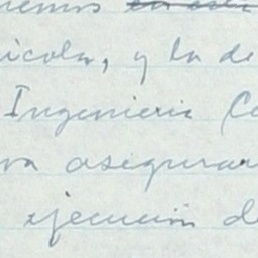 remos
ícola, y la de
Ingenieria C
va asegurar
ejecución de